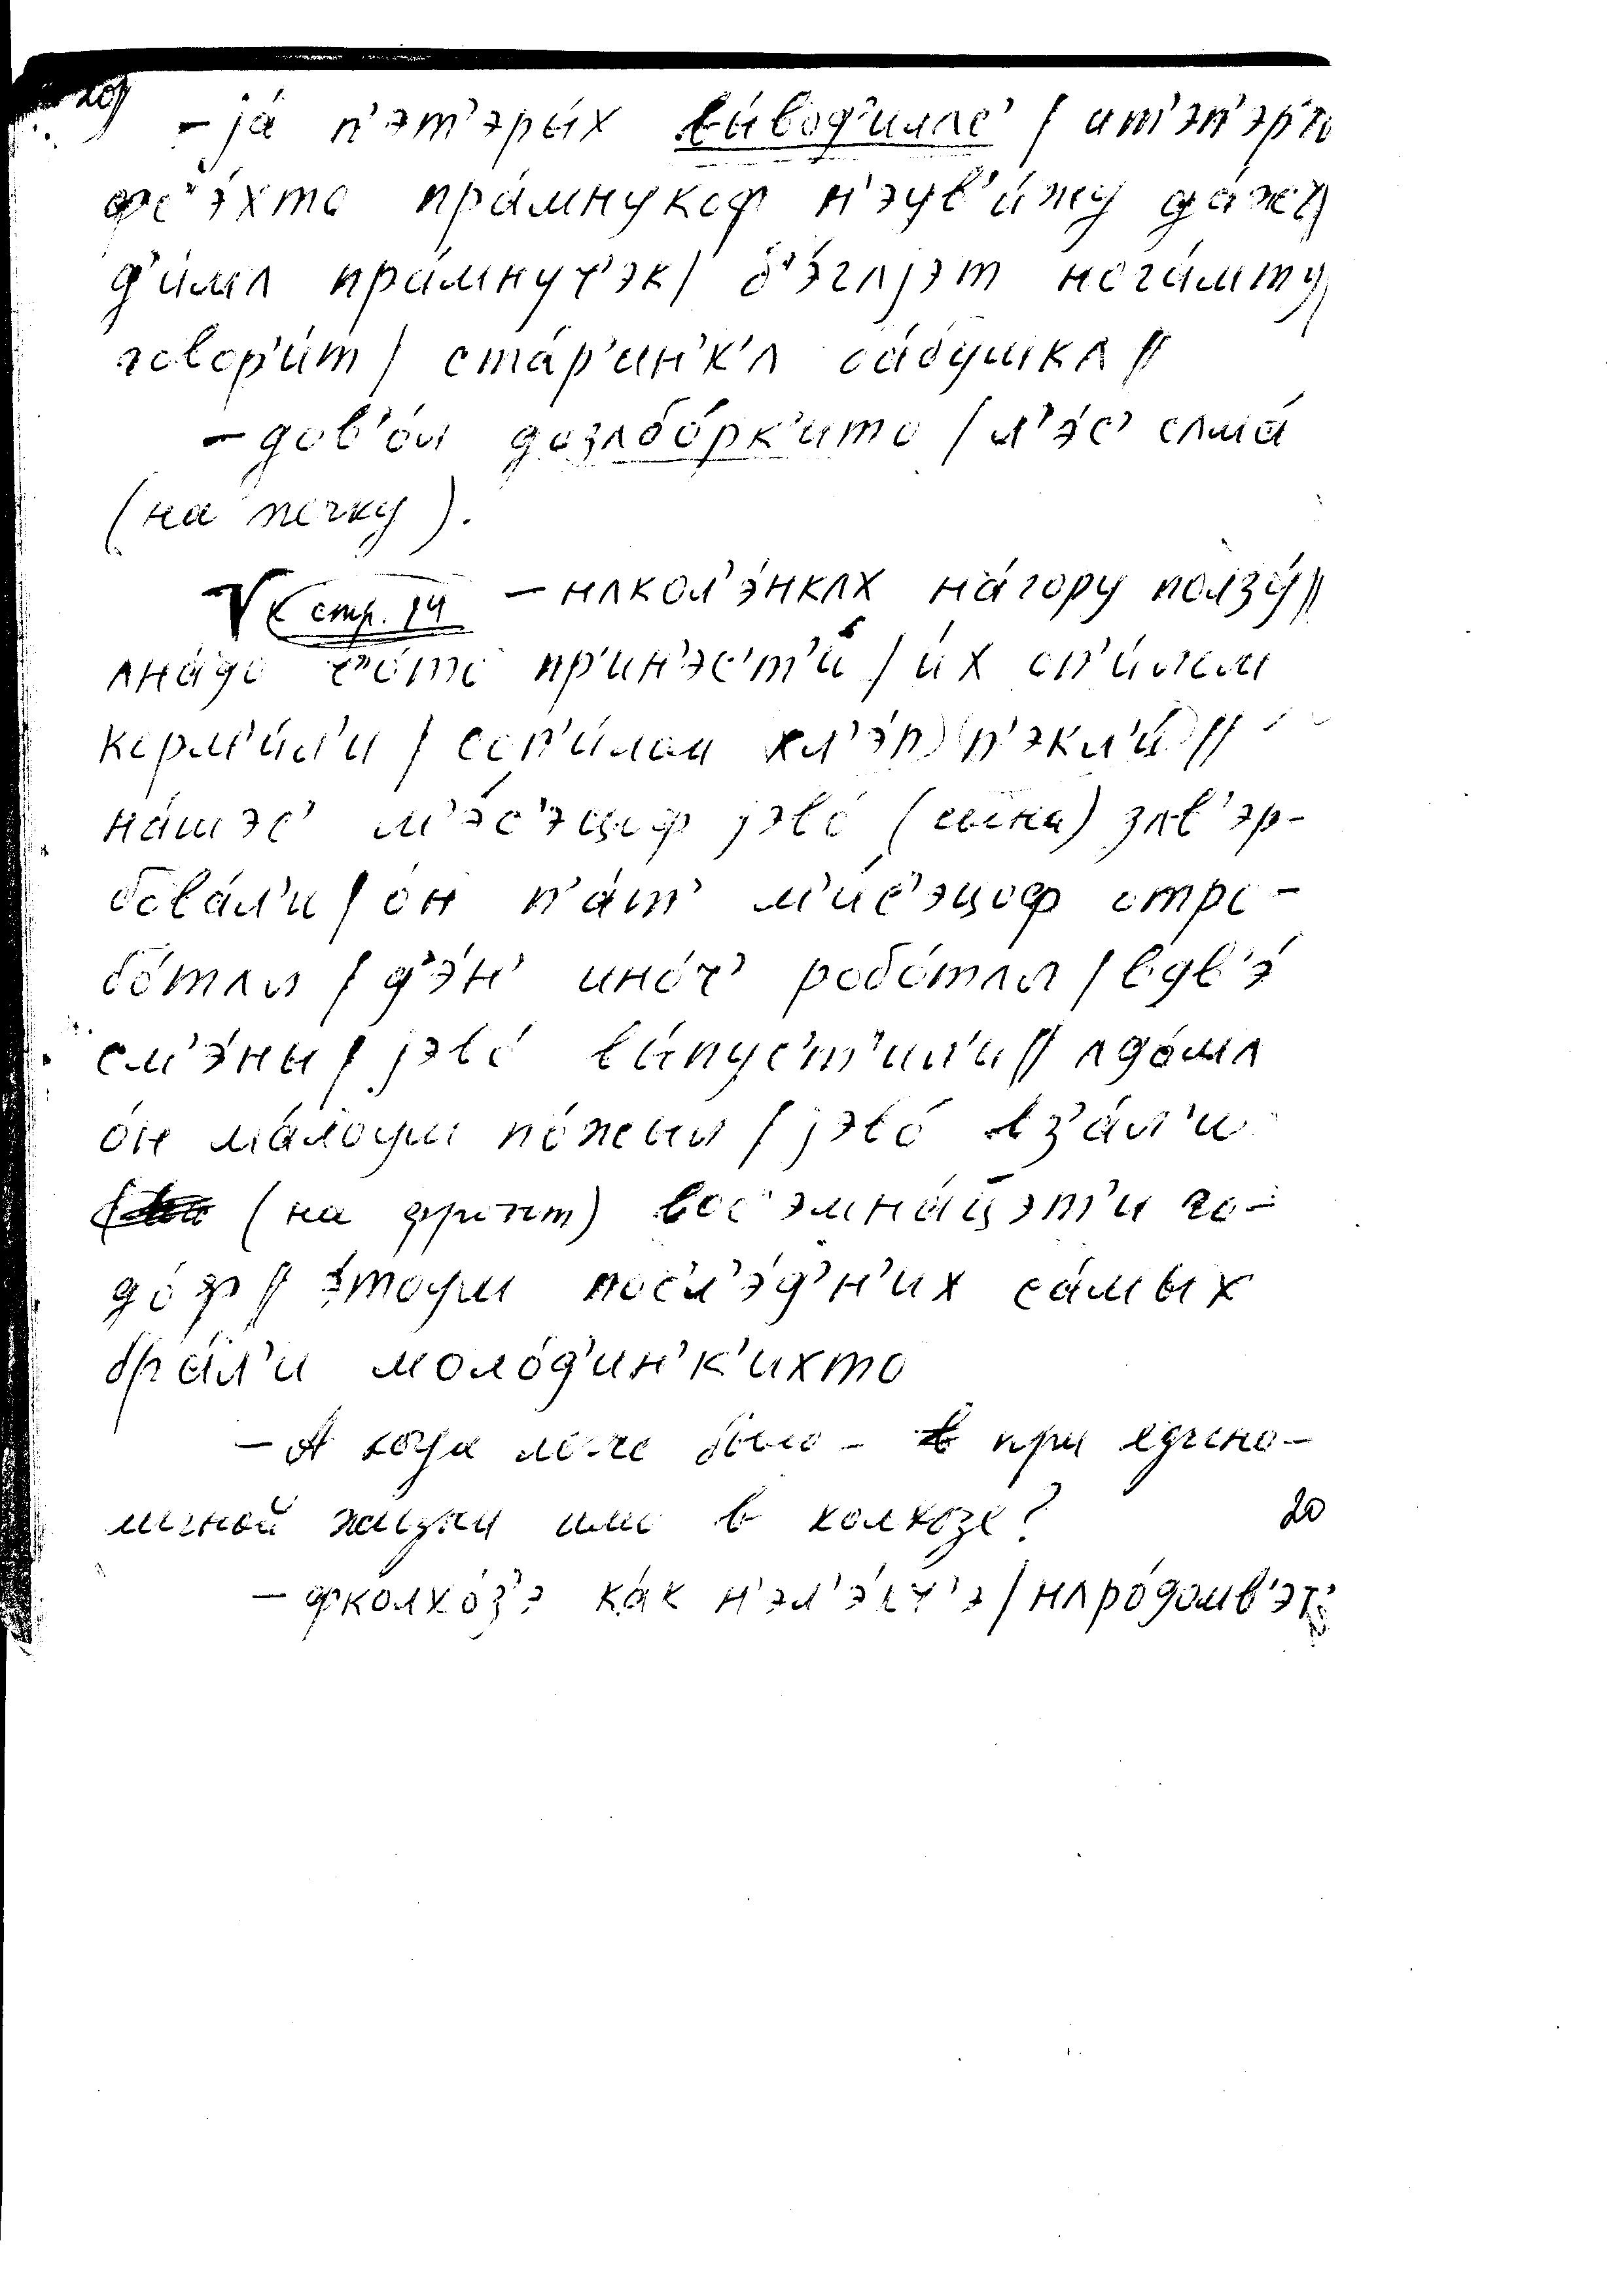 20)
– jа́ п'эт'эры́х вы́вод'иллс' / ит'эп'эр'то
фс'э́хто пра́мнукоф н'эув'и́жу да́жъ //
д'и́мл пра́мнуч'эк / б'э́глjэт нога́мту /
говор'и́т / ста́р'ин'к'л ба́бушкл //
– дов'о́л дозлбо́рк'ито / л'э́с' слма́
(на печку).
V (к стр. 14 – нлкол'э́нклх на́гору ползу́ //
лна́до ч'о́то прин'эс'т'и́ / и́х оп'и́лом
корм'и́л'и / соп'и́лом хл'э́п п'экл'и́ //
на́шэс' м'э́с'эцоф jэво́ (сына) злв'эр-
бова́л'и / о́н п'а́т' м'и́с'эцоф отро-
бо́тлл / д'э́н' ино́ч' робо́тлл / вдв'э́
см'э́ны / jэво́ вы́пус'т'ил'и // лдо́мл
о́н ма́лоум по́жыл / jэво́ вз'а́л'и
(на фронт) вос'эмна́цэт'и го-
до́ф // э́тоум посл'э́д'н'их са́мых
бра́л'и моло́д'ин'к'ихто
– А когда легче было – при едино-
личной жизни или в колхозе? 20
– фколхо́з'э ка́к н'эл'э́хч'э / нлро́домв'эт'